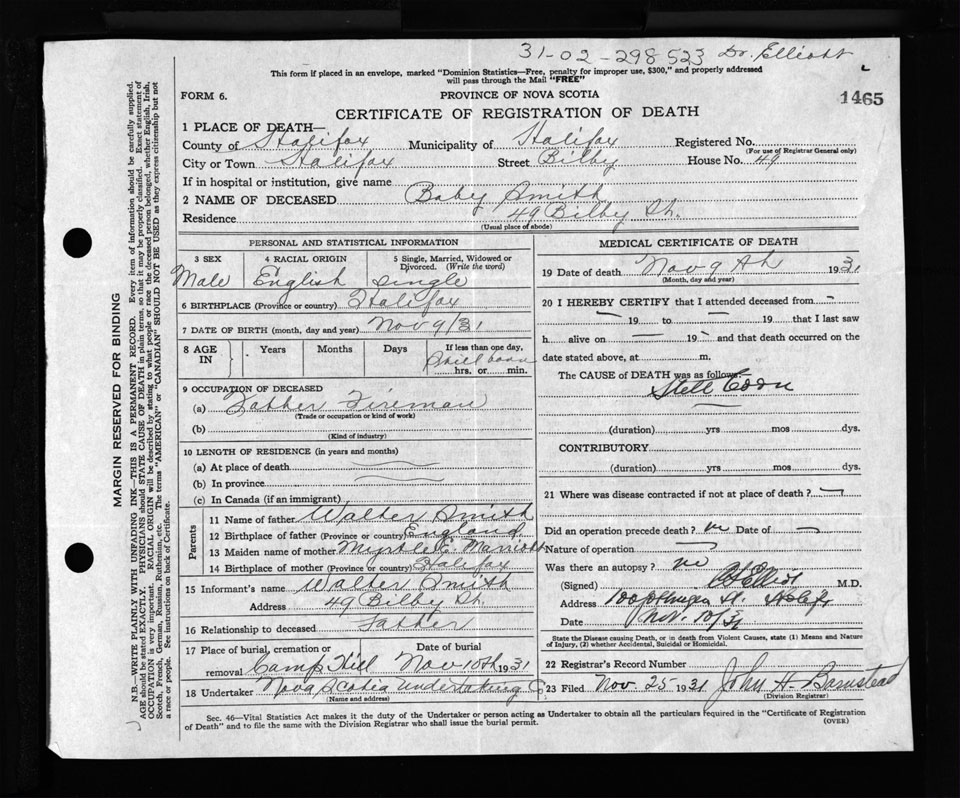 31-02-298523 Dr. Elliott
This form if placed in an envelope, marked "Dominion Statistics—Free, penalty for improper use, $300," and properly addressed
will pass through the Mail "FREE"
FORM 6.
PROVINCE OF NOVA SCOTIA
1465
CERTIFICATE OF REGISTRATION OF DEATH
1 PLACE OF DEATH—
County of Halifax Municipality of Halifax Registered No.
(For use of Registrar General only)
City or Town Halifax Street Bilby House No. 49
If in hospital or institution, give name
2 NAME OF DECEASED Baby Smith
Residence 49 Bilby St.
(Usual place of abode)
PERSONAL AND STATISTICAL INFORMATION
3 SEX 4 RACIAL ORIGIN 5 Single, Married, Widowed or
Divorced. (Write the word)
Male English Single
6 BIRTHPLACE (Province or country) Halifax
7 DATE OF BIRTH (month, day and year) Nov 9/31
8 AGE IN Years Months Days If less than one day,
Still born
hrs. or min.
9 OCCUPATION OF DECEASED
(a) Father Fireman
(Trade or occupation or kind of work)
(b)
(Kind of industry)
10 LENGTH OF RESIDENCE (in years and months)
(a) At place of death
(b) In province
(c) In Canada (if an immigrant)
Parents
11 Name of father Walter Smith
12 Birthplace of father (Province or country) England
13 Maiden name of mother Myrtle E. Marriott
14 Birthplace of mother (Province or country) Halifax
15 Informant's name Walter Smith
Address 49 Bilby St.
16 Relationship to deceased Father
17 Place of burial, cremation or Date of burial
removal Camp Hill Nov 10th 1931
18 Undertaker Nova Scotia Undertaking Co
(Name and address)
MEDICAL CERTIFICATE OF DEATH
19 Date of death Nov 9th 1931
(Month, day and year)
20 I HEREBY CERTIFY that I attended deceased from
19 to 19 that I last saw
h alive on 19 and that death occurred on the
date stated above, at m.
The CAUSE of DEATH was as follows:
Still Born
(duration) yrs mos dys.
CONTRIBUTORY
(duration) yrs mos dys.
21 Where was disease contracted if not at place of death?
Did an operation precede death? no Date of
Nature of operation
Was there an autopsy? no
(Signed) M.D.
Address
Date Nov. 10/31
State the Disease causing Death, or in death from Violent Causes, state (1) Means and Nature
of Injury, (2) whether Accidental, Suicidal or Homicidal.
22 Registrar's Record Number
23 Filed Nov. 25 1931 John H. Barnstead
(Division Registrar)
Sec. 46—Vital Statistics Act makes it the duty of the Undertaker or person acting as Undertaker to obtain all the particulars required in the "Certificate of Registration
of Death" and to file the same with the Division Registrar who shall issue the burial permit.
(OVER)
MARGIN RESERVED FOR BINDING
N.B.—WRITE PLAINLY WITH UNFADING INK—THIS IS A PERMANENT RECORD. Every item of information should be carefully supplied.
AGE should be stated EXACTLY. PHYSICIANS should STATE CAUSE OF DEATH in plain terms, so that it may be properly classified. Exact statement of
OCCUPATION is very important. RACIAL ORIGIN will be described by stating to what people or race the deceased person belonged, whether English, Irish,
Scotch, French, German, Russian, Ruthenian, etc. The terms "AMERICAN" or "CANADIAN" SHOULD NOT BE USED as they express citizenship but not
a race or people. See instructions on back of Certificate.